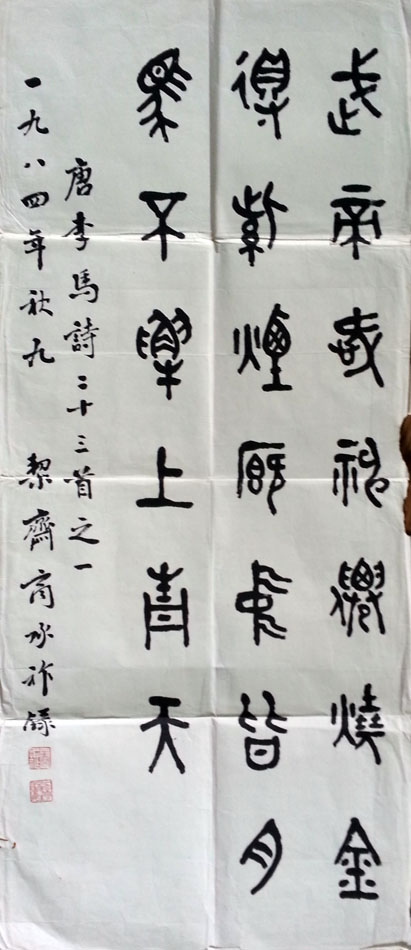 武帝愛神僊燒金
得紫煙廄中皆肉
馬不解上青天
唐李馬詩二十三首之一
一九八四年秋九 栔齋商承祚錄